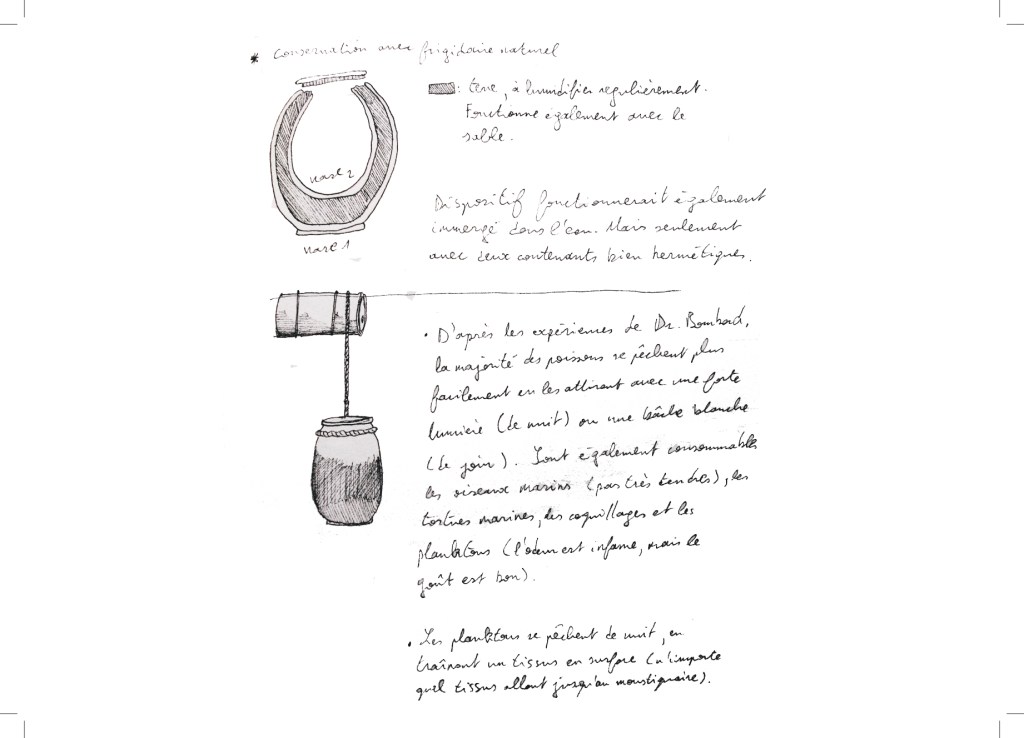 * Conservation avec frigidaire naturel
: terre, à humidifier regulièrement.
Fonctionne également avec le
sable.
vase 2
vase 1
Dispositif fonctionnerait également
immergé dans l'eau. Mais seulement
avec deux contenants bien hermétiques.
• D'après les expériences de Dr. Bombard,
la majorité des poissons se pêchent plus
facilement en les attirant avec une forte
lumière (de nuit) ou une bâche blanche
(de jour). Sont également consommables
les oiseaux marins (pas très tendres), les
tortues marines, les coquillages et les
planktons (l'odeur est infame, mais le
goût est bon).
• Les planktons se pêchent de nuit, en
traînant un tissus en surface (n'importe
quel tissus allant jusqu'au moustiquaire).